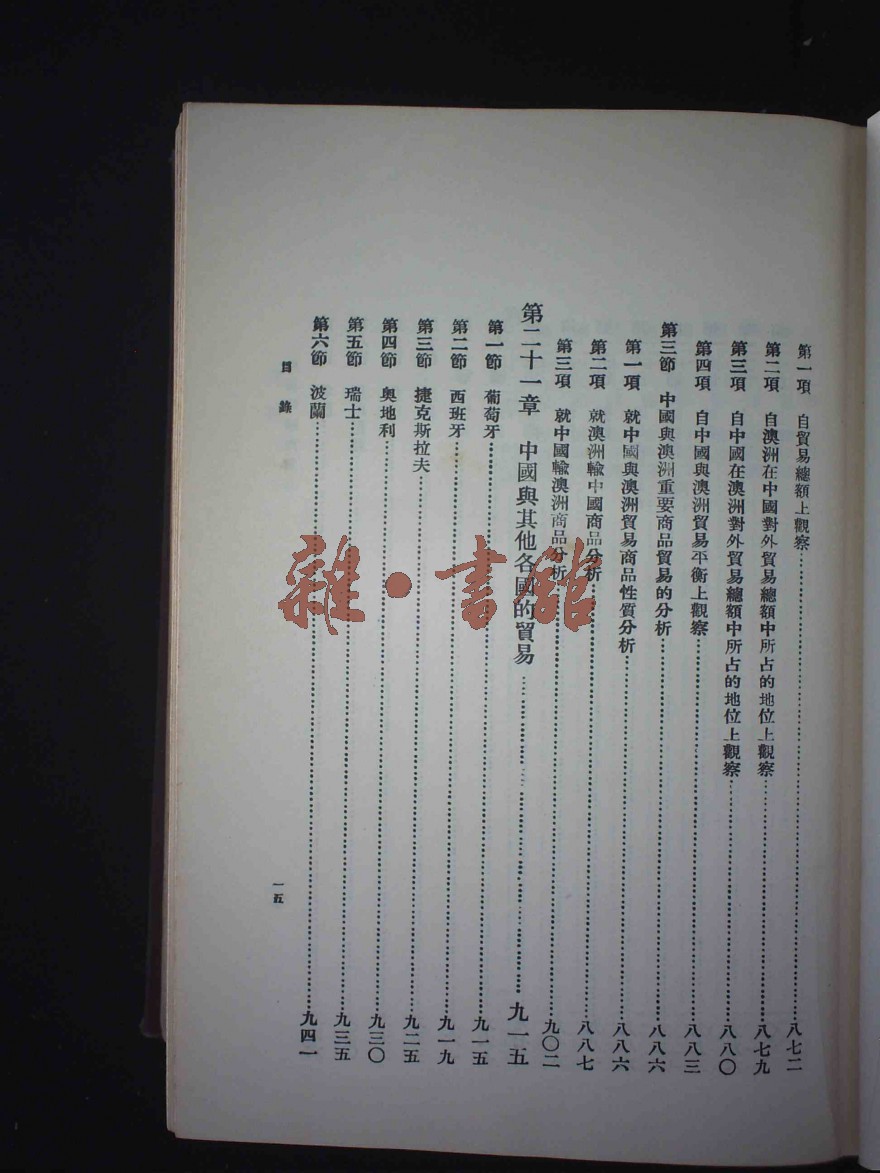 第一項 自貿易總額上觀察……八七二
第二項 自澳洲在中國對外貿易總額中所占的地位上觀察……八七九
第三項 自中國在澳洲對外貿易總額中所占的地位上觀察……八八〇
第四項 自中國與澳洲貿易平衡上觀察……八八三
第三節 中國與澳洲重要商品貿易的分析……八八六
第一項 就中國與澳洲貿易商品性質分析……八八六
第二項 就澳洲輸中國商品分析……八八七
第三項 就中國輸澳洲商品分析……九〇二
第二十一章 中國與其他各國的貿易……九一五
第一節 葡萄牙……九一五
第二節 西班牙……九一九
第三節 捷克斯拉夫……九二五
第四節 奧地利……九三〇
第五節 瑞士……九三五
第六節 波蘭……九四一
目錄 一五
雜·書館